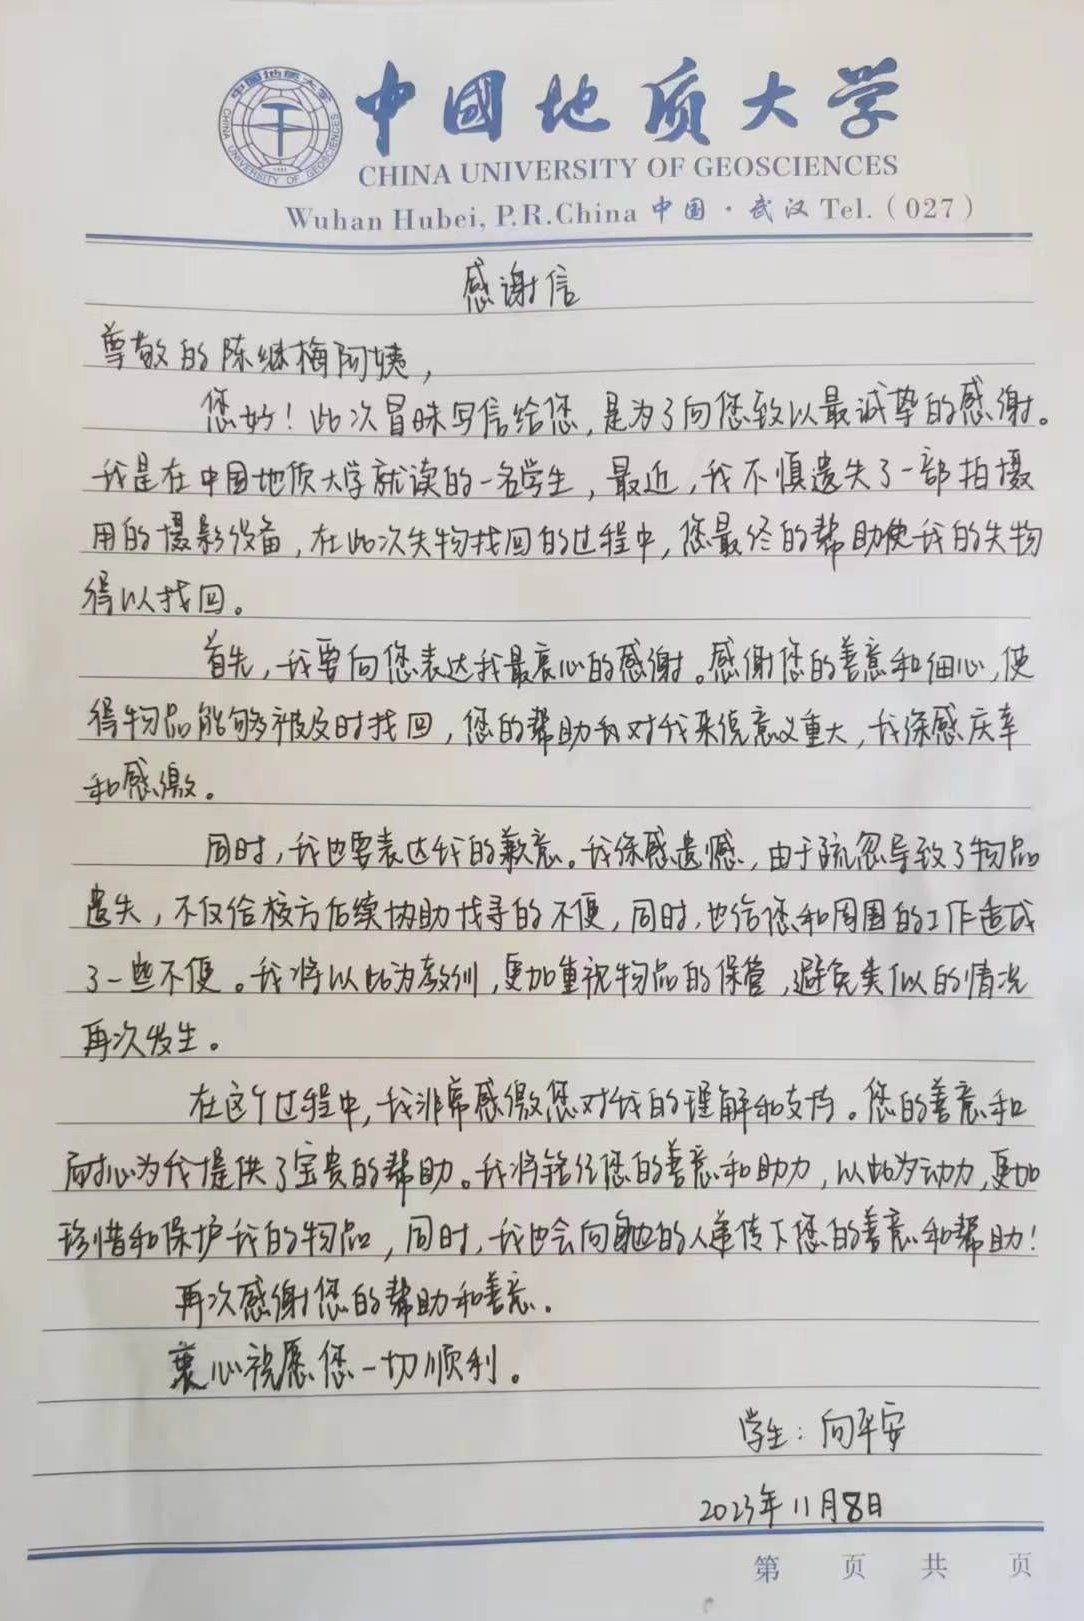 中国地质大学
CHINA UNIVERSITY OF GEOSCIENCES
Wuhan Hubei, P.R.China 中国·武汉 Tel.(027)
感谢信
尊敬的陈继梅阿姨,
您好!此次冒昧写信给您,是为了向您致以最诚挚的感谢。
我是在中国地质大学就读的一名学生,最近,我不慎遗失了一部拍摄
用的摄影设备,在此次失物找回的过程中,您最终的帮助使我的失物
得以找回。
首先,我要向您表达我最衷心的感谢。感谢您的善意和细心,使
得物品能够被及时找回,您的帮助和对我来说意义重大,我深感庆幸
和感激。
同时,我也要表达我的歉意。我深感遗憾,由于疏忽导致了物品
遗失,不仅给校方后续协助找寻的不便,同时,也给您和周围的工作造成
了一些不便。我将以此为教训,更加重视物品的保管,避免类似的情况
再次发生。
在这个过程中,我非常感激您对我的理解和支持。您的善意和
耐心为我提供了宝贵的帮助。我将铭记您的善意和助力,以此为动力,更加
珍惜和保护我的物品,同时,我也会向其他的人传递下您的善意和帮助!
再次感谢您的帮助和善意.
衷心祝愿您一切顺利。
学生:向平安
2023年11月8日
第 页 共 页